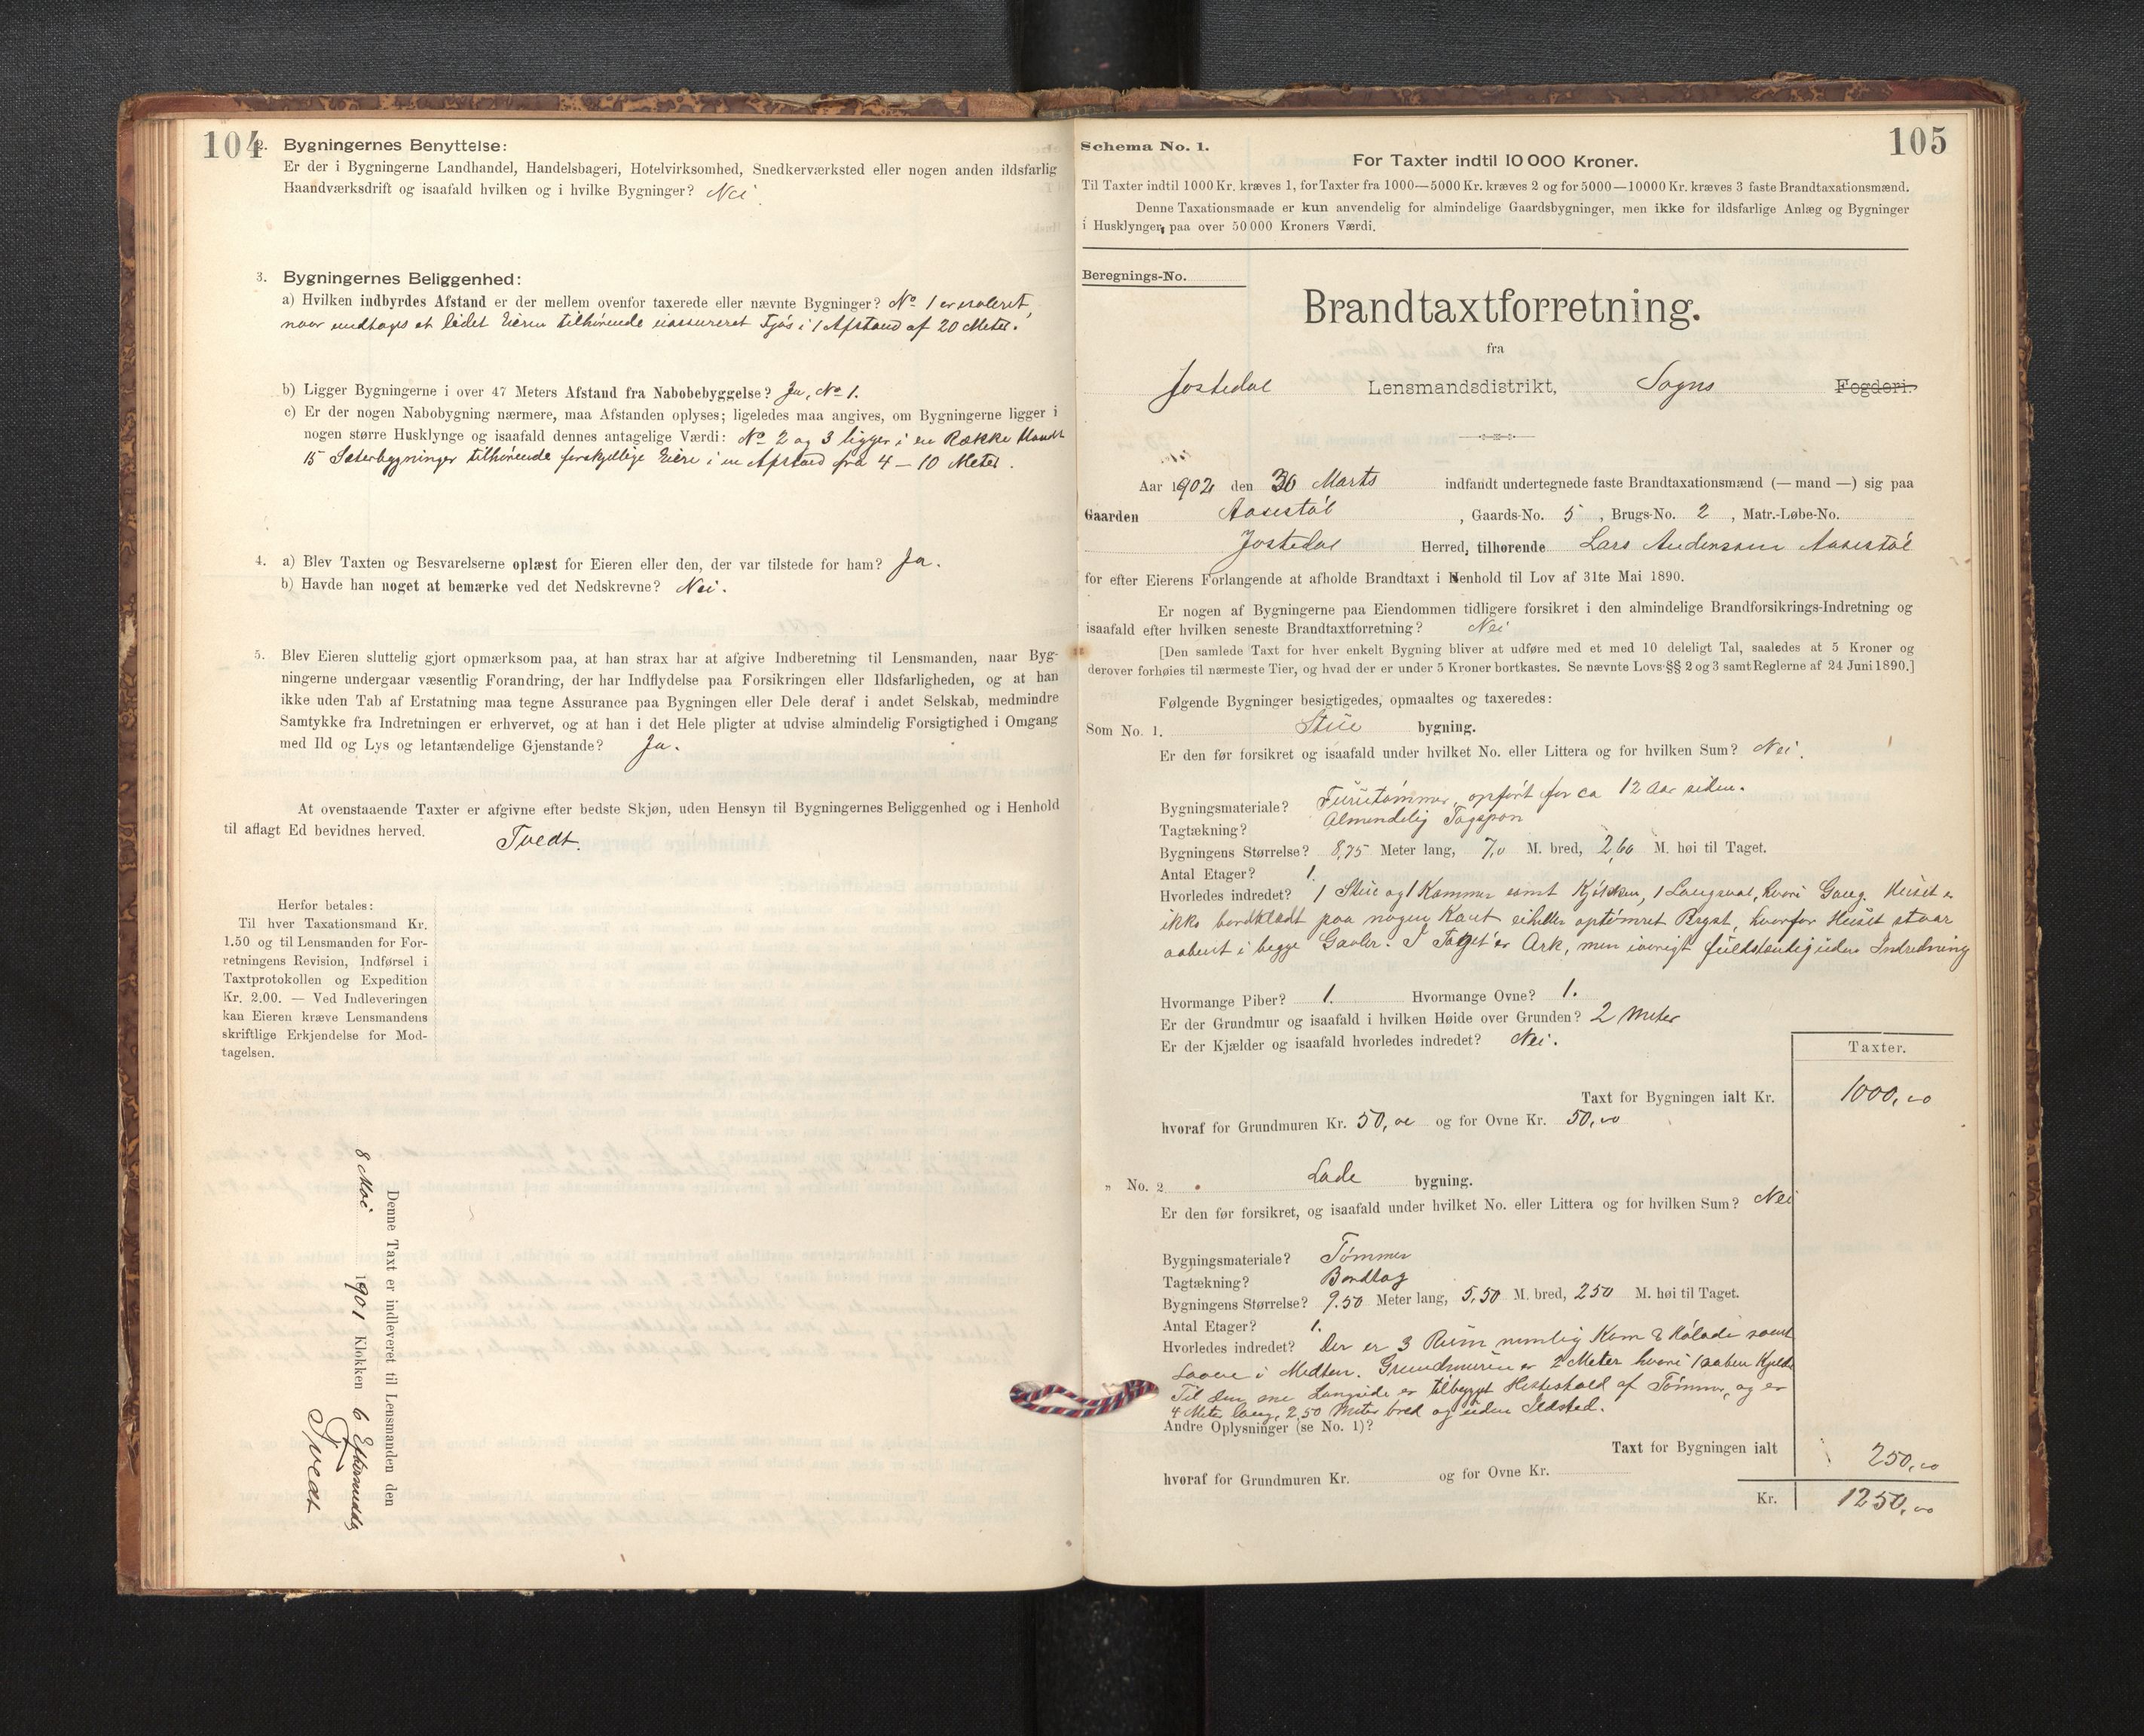 104
2. Bygningernes Benyttelse:
Er der i Bygningerne Landhandel, Handelsbageri, Hotelvirksomhed, Snedkerværksted eller nogen anden ildsfarlig
Haandværksdrift og isaafald hvilken og i hvilke Bygninger? Nei.
3. Bygningernes Beliggenhed:
a) Hvilken indbyrdes Afstand er der mellem ovenfor taxerede eller nævnte Bygninger? No 1 er isoleret,
naar undtages et lidet Eieren tilhørende uassureret Fjøs i 1 Afstand af 20 Meter.
b) Ligger Bygningerne i over 47 Meters Afstand fra Nabobebyggelse? Ja, No 1.
c) Er der nogen Nabobygning nærmere, maa Afstanden oplyses; ligeledes maa angives, om Bygningerne ligger i
nogen større Husklynge og isaafald dennes antagelige Værdi: No 2 og 3 ligger i en Række blandt
15 Sæterbygninger tilhørende forskjellige Eiere i en Afstand fra 4 — 10 Meter.
4. a) Blev Taxten og Besvarelserne oplæst for Eieren eller den, der var tilstede for ham? Ja.
b) Havde han noget at bemærke ved det Nedskrevne? Nei.
5. Blev Eieren sluttelig gjort opmærksom paa, at han strax har at afgive Indberetning til Lensmanden, naar Byg-
ningerne undergaar væsentlig Forandring, der har Indflydelse paa Forsikringen eller Ildsfarligheden, og at han
ikke uden Tab af Erstatning maa tegne Assurance paa Bygningen eller Dele deraf i andet Selskab, medmindre
Samtykke fra Indretningen er erhvervet, og at han i det Hele pligter at udvise almindelig Forsigtighed i Omgang
med Ild og Lys og letantændelige Gjenstande? Ja.
At ovenstaaende Taxter er afgivne efter bedste Skjøn, uden Hensyn til Bygningernes Beliggenhed og i Henhold
til aflagt Ed bevidnes herved. Tvedt.
Herfor betales:
Til hver Taxationsmand Kr.
1.50 og til Lensmanden for For-
retningens Revision, Indførsel i
Taxtprotokollen og Expedition
Kr. 2.00. — Ved Indleveringen
kan Eieren kræve Lensmandens
skriftlige Erkjendelse for Mod-
tagelsen.
Denne Taxt er indleveret til Lensmanden den
8 Mai 1901 Klokken 6 Eftermiddag
Tvedt
105
Schema No. 1.
For Taxter indtil 10 000 Kroner.
Til Taxter indtil 1000 Kr. kræves 1, for Taxter fra 1000—5000 Kr. kræves 2 og for 5000—10000 Kr. kræves 3 faste Brandtaxationsmænd.
Denne Taxationsmaade er kun anvendelig for almindelige Gaardsbygninger, men ikke for ildsfarlige Anlæg og Bygninger
i Husklynger, paa over 50 000 Kroners Værdi.
Beregnings-No.
Brandtaxtforretning.
fra
Jostedal Lensmandsdistrikt, Sogns Fogderi.
Aar 1902 den 30 Marts indfandt undertegnede faste Brandtaxationsmænd (— mand —) sig paa
Gaarden Aasestøl, Gaards-No. 5, Brugs-No. 2, Matr.-Løbe-No.
Jostedal Herred, tilhørende Lars Anderssen Aasestøl
for efter Eierens Forlangende at afholde Brandtaxt i Henhold til Lov af 31te Mai 1890.
Er nogen af Bygningerne paa Eiendommen tidligere forsikret i den almindelige Brandforsikrings-Indretning og
isaafald efter hvilken seneste Brandtaxtforretning? Nei
[Den samlede Taxt for hver enkelt Bygning bliver at udføre med et med 10 deleligt Tal, saaledes at 5 Kroner og
derover forhøies til nærmeste Tier, og hvad der er under 5 Kroner bortkastes. Se nævnte Lovs §§ 2 og 3 samt Reglerne af 24 Juni 1890.]
Følgende Bygninger besigtigedes, opmaaltes og taxeredes:
Som No. 1. Stue bygning.
Er den før forsikret og isaafald under hvilket No. eller Littera og for hvilken Sum? Nei.
Bygningsmateriale? Furutømmer, opført for ca 12 Aar siden.
Tagtækning? Almindelig Tagspon
Bygningens Størrelse? 8,75 Meter lang, 7,0 M. bred, 2,60 M. høi til Taget.
Antal Etager? 1.
Hvorledes indredet? 1 Stue og 1 Kammer samt Kjøkken, 1 Langsval, hvori Gang. Huset er
ikke bordklædt paa nogen Kant eiheller optømret Bryst, hvorfor Huset staar
aabent i begge Gavler. I Taget er Ark, men iøvrigt fuldstændig uden Indredning
Hvormange Piber? 1. Hvormange Ovne? 1.
Er der Grundmur og isaafald i hvilken Høide over Grunden? 2 Meter
Er der Kjælder og isaafald hvorledes indredet? Nei.
Taxter.
Taxt for Bygningen ialt Kr. 1000,00
hvoraf for Grundmuren Kr. 50,00 og for Ovne Kr. 50,00
" No. 2 Lade bygning.
Er den før forsikret, og isaafald under hvilket No. eller Littera og for hvilken Sum? Nei
Bygningsmateriale? Tømmer
Tagtækning? Bordtag
Bygningens Størrelse? 9.50 Meter lang, 5,50 M. bred, 250 M. høi til Taget.
Antal Etager? 1.
Hvorledes indredet? Der er 3 Rum nemlig Korn & Hølade samt
Laave i Midten. Grundmuren er 2 Meter hvori 1 aaben Kjelder
Til den ene Langside er tilbygget Hestestald af Tømmer, og er
4 Meter lang, 2,50 Meter bred og uden Ildsted.
Andre Oplysninger (se No. 1)?
Taxt for Bygningen ialt 250,00
hvoraf for Grundmuren Kr. og for Ovne Kr.
Kr. 1250,00